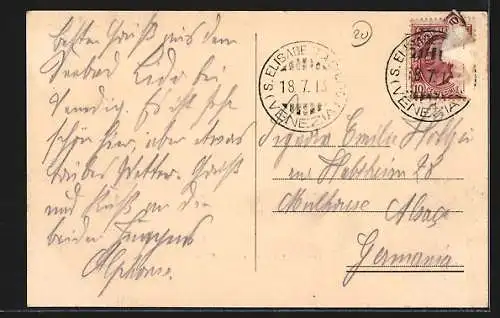 besten Gruß aus dem
Seebad Lido bei
Venedig. Es ist sehr
schön hier, aber etwas
trübes Wetter. Gruß
und Kuß an die
beiden
Alphons.
20
S. ELISABETTA
18.7.13
(VENEZIA)
S. ELIS
18.7.13
(VENEZIA)
10
Signora Emilie
28
Mülhouse Alsace
Germania